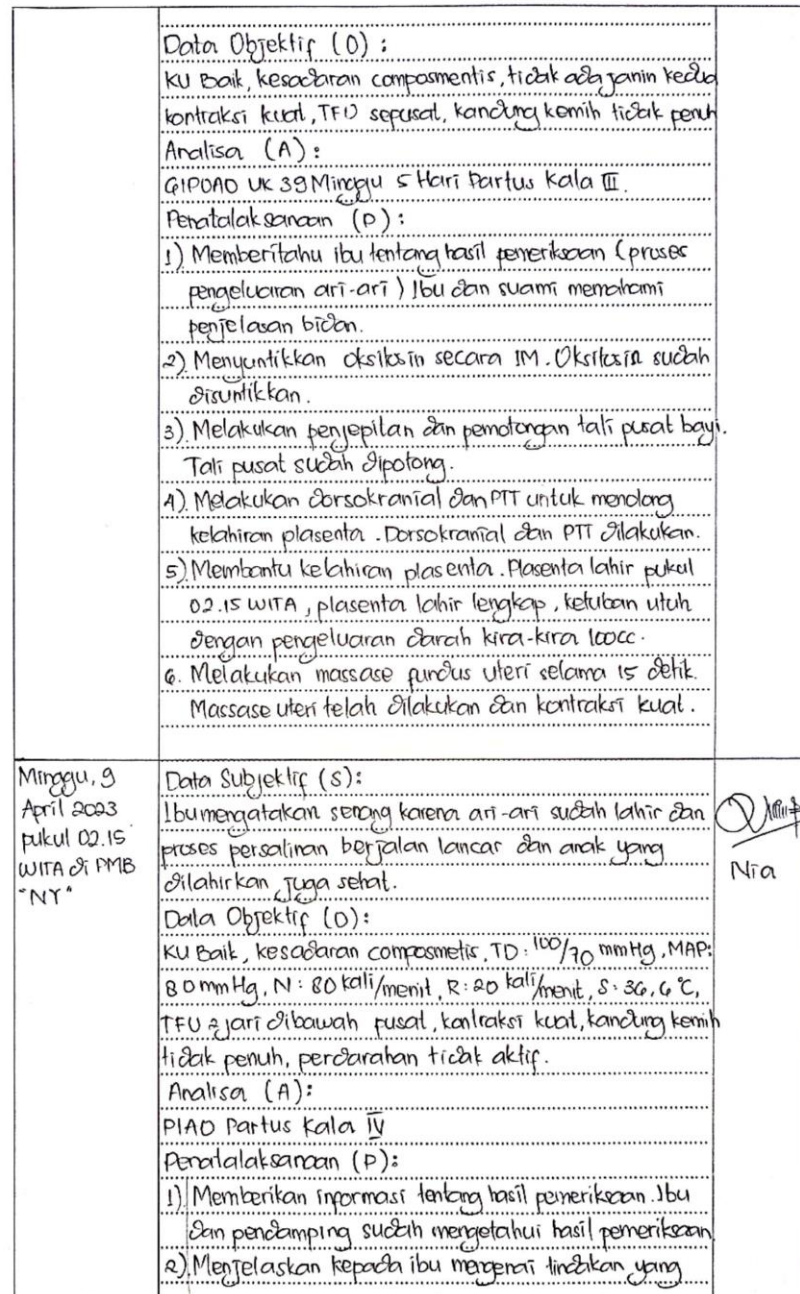 Data Objektif (O) :
KU Baik, kesadaran composmentis, tidak ada janin kedua
kontraksi kuat, TFU sepusat, kandung kemih tidak penuh
Analisa (A) :
G1P0A0 UK 39 Minggu 5 Hari Partus Kala III.
Penatalaksanaan (P) :
1) Memberitahu ibu tentang hasil pemeriksaan (proses
pengeluaran ari-ari) Ibu dan suami memahami
penjelasan bidan.
2) Menyuntikkan oksitosin secara IM. Oksitosin sudah
disuntikkan.
3) Melakukan penjepitan dan pemotongan tali pusat bayi.
Tali pusat sudah dipotong.
4) Melakukan dorsokranial dan PTT untuk menolong
kelahiran plasenta. Dorsokranial dan PTT dilakukan.
5) Membantu kelahiran plasenta. Plasenta lahir pukul
02.15 WITA, plasenta lahir lengkap, ketuban utuh
dengan pengeluaran darah kira-kira 100cc.
6. Melakukan massase fundus uteri selama 15 detik.
Massase uteri telah dilakukan dan kontraksi kuat.
Minggu, 9
April 2023
pukul 02.15
WITA di PMB
"NY"
Data Subjektif (S):
Ibu mengatakan senang karena ari-ari sudah lahir dan
proses persalinan berjalan lancar dan anak yang
dilahirkan juga sehat.
Data Objektif (O):
KU Baik, kesadaran composmetis, TD: 100/70 mmHg, MAP:
80 mmHg, N: 80 kali/menit, R: 20 kali/menit, S: 36,6°C,
TFU 2 jari dibawah pusat, kontraksi kuat, kandung kemih
tidak penuh, perdarahan tidak aktif.
Analisa (A):
P1A0 Partus Kala IV
Penatalaksanaan (P):
1) Memberikan informasi tentang hasil pemeriksaan. Ibu
dan pendamping sudah mengetahui hasil pemeriksaan
2) Menjelaskan kepada ibu mengenai tindakan yang
Nia